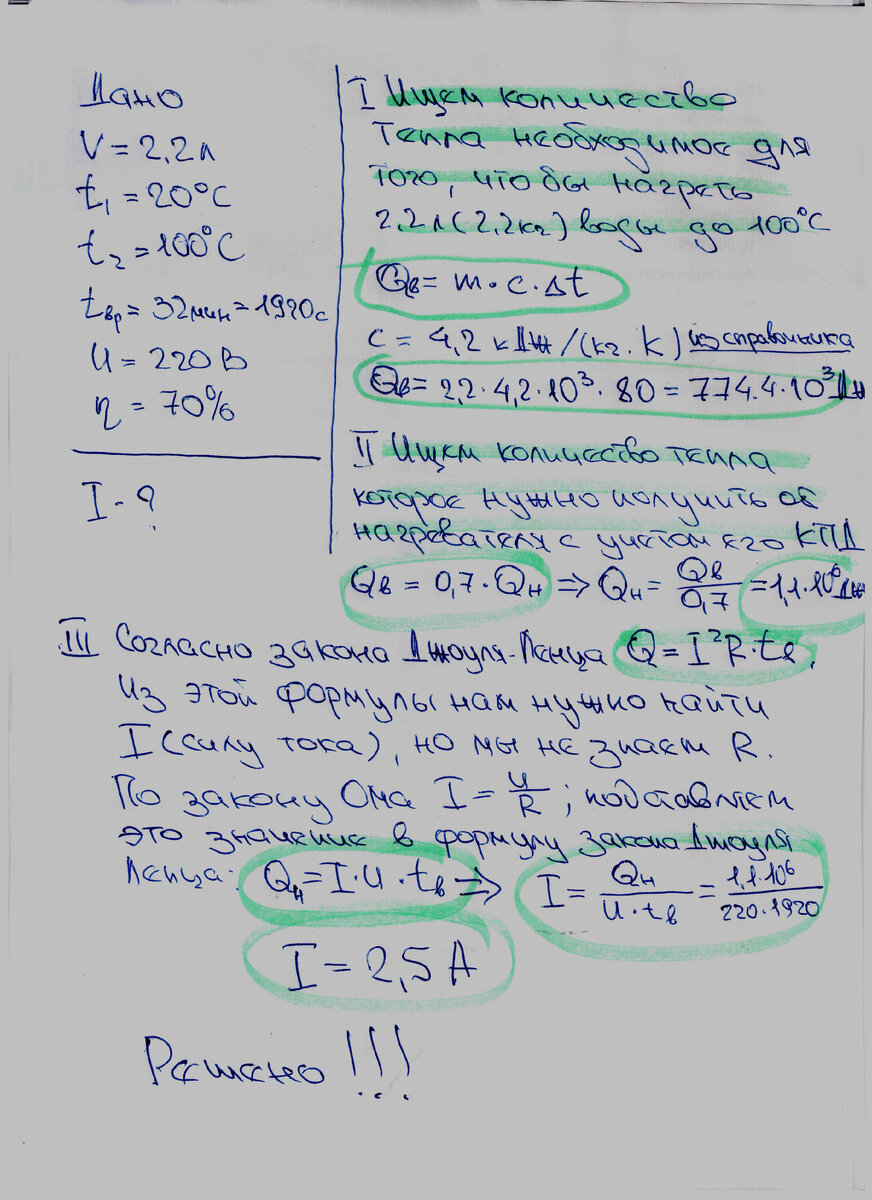 Дано
V = 2,2 л
t₁ = 20°С
t₂ = 100°С
tвр = 32 мин = 1920 с
U = 220 В
η = 70%
I - ?
I Ищем количество
тепла необходимое для
того, что бы нагреть
2,2 л (2,2 кг) воды до 100°С
Qв = m · c · Δt
c = 4,2 кДж/(кг. К) из справочника
Qв = 2,2 · 4,2 · 10³ · 80 = 774.4 · 10³ Дж
II Ищем количество тепла
которое нужно получить от
нагревателя с учетом его КПД
Qв = 0,7 · Qн ⇒ Qн = Qв/0,7 = 1,1 · 10⁶ Дж
III Согласно закона Джоуля-Ленца Q = I²R · tв.
Из этой формулы нам нужно найти
I (силу тока), но мы не знаем R.
По закону Ома I = U/R ; подставляем
это значение в формулу закона Джоуля
Ленца: Qн = I · U · tв ⇒ I = Qн/(U · tв) = 1,1 · 10⁶/(220 · 1920)
I = 2,5 А
Решено !!!